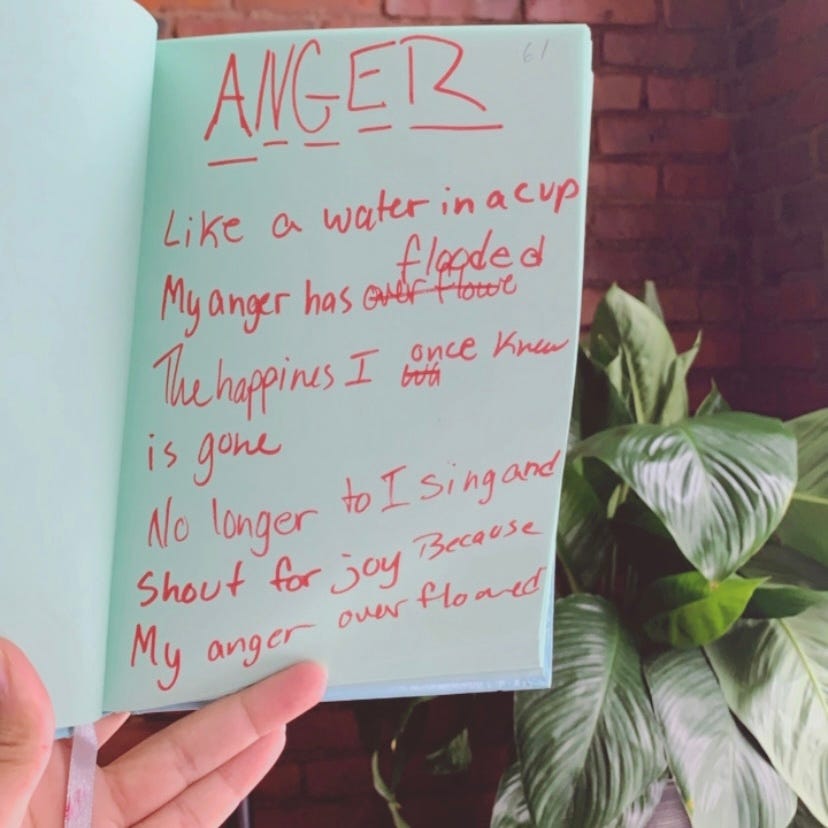 ANGER
61
Like a water in a cup
flooded
My anger has over flowe
The happines I once knew
is gone
No longer to I sing and
shout for joy Because
My anger over flowed